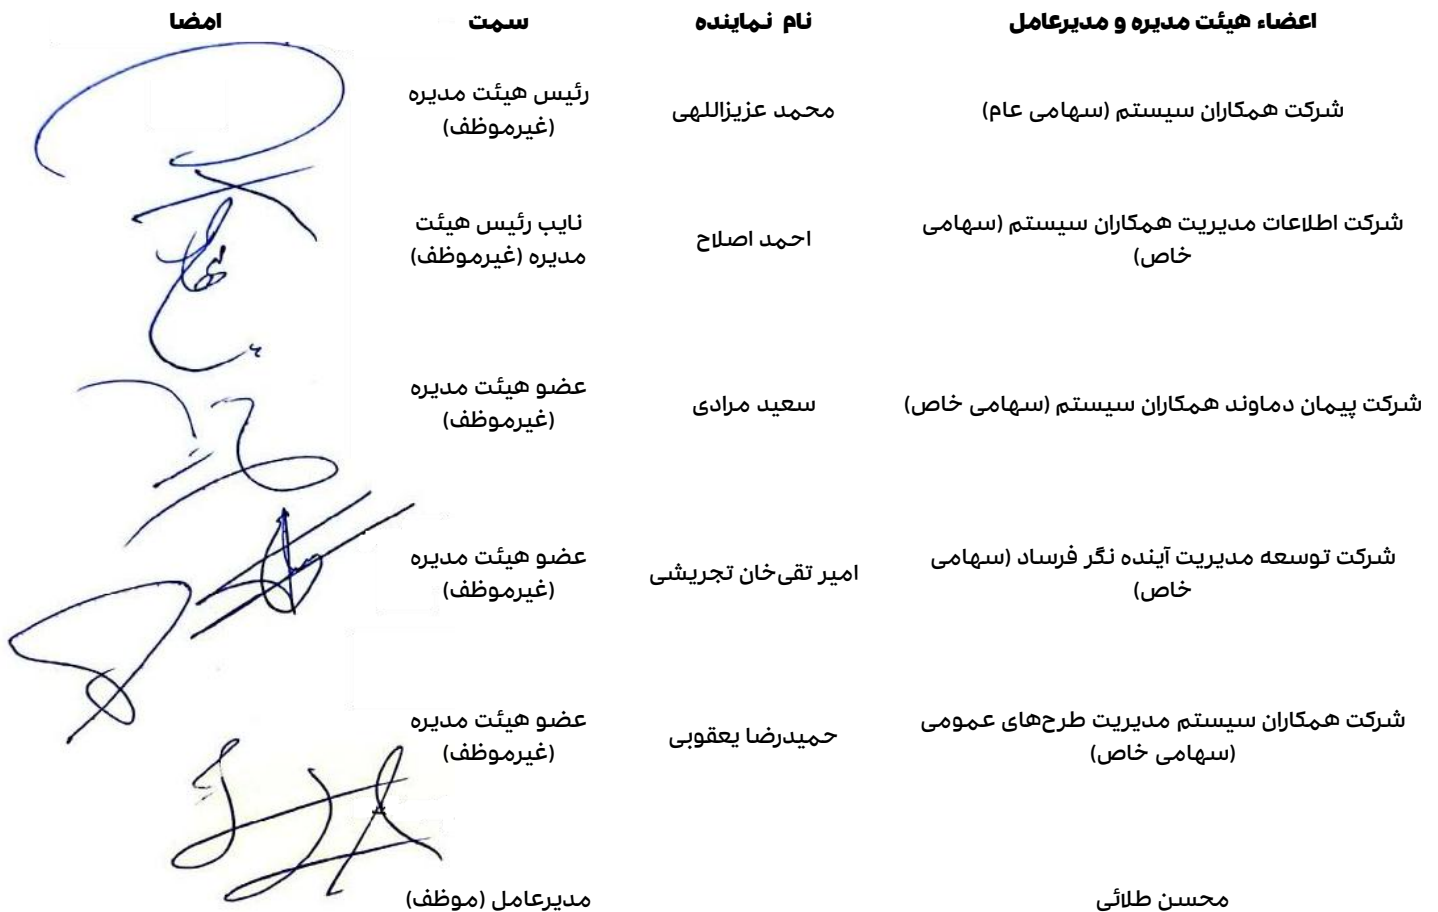 اعضاء هیئت مدیره و مدیرعامل نام نماینده سمت امضا
شرکت همکاران سیستم (سهامی عام) محمد عزیزاللهی رئیس هیئت مدیره
(غیرموظف)
شرکت اطلاعات مدیریت همکاران سیستم (سهامی
خاص) احمد اصلاح نایب رئیس هیئت
مدیره (غیرموظف)
شرکت پیمان دماوند همکاران سیستم (سهامی خاص) سعید مرادی عضو هیئت مدیره
(غیرموظف)
شرکت توسعه مدیریت آینده نگر فرساد (سهامی
خاص) امیر تقی‌خان تجریشی عضو هیئت مدیره
(غیرموظف)
شرکت همکاران سیستم مدیریت طرح‌های عمومی
(سهامی خاص) حمیدرضا یعقوبی عضو هیئت مدیره
(غیرموظف)
محسن طلائی مدیرعامل (موظف)